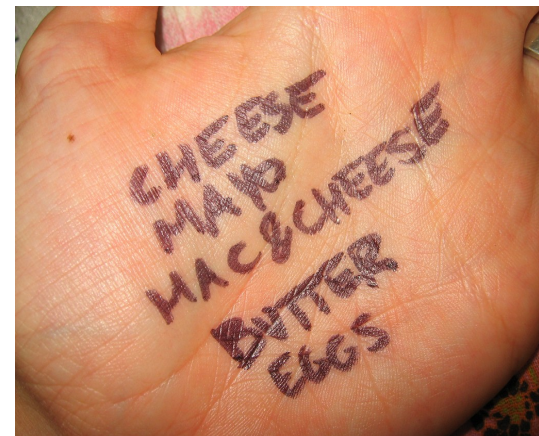 CHEESE
MAYO
MAC&CHEESE
BUTTER
EGGS